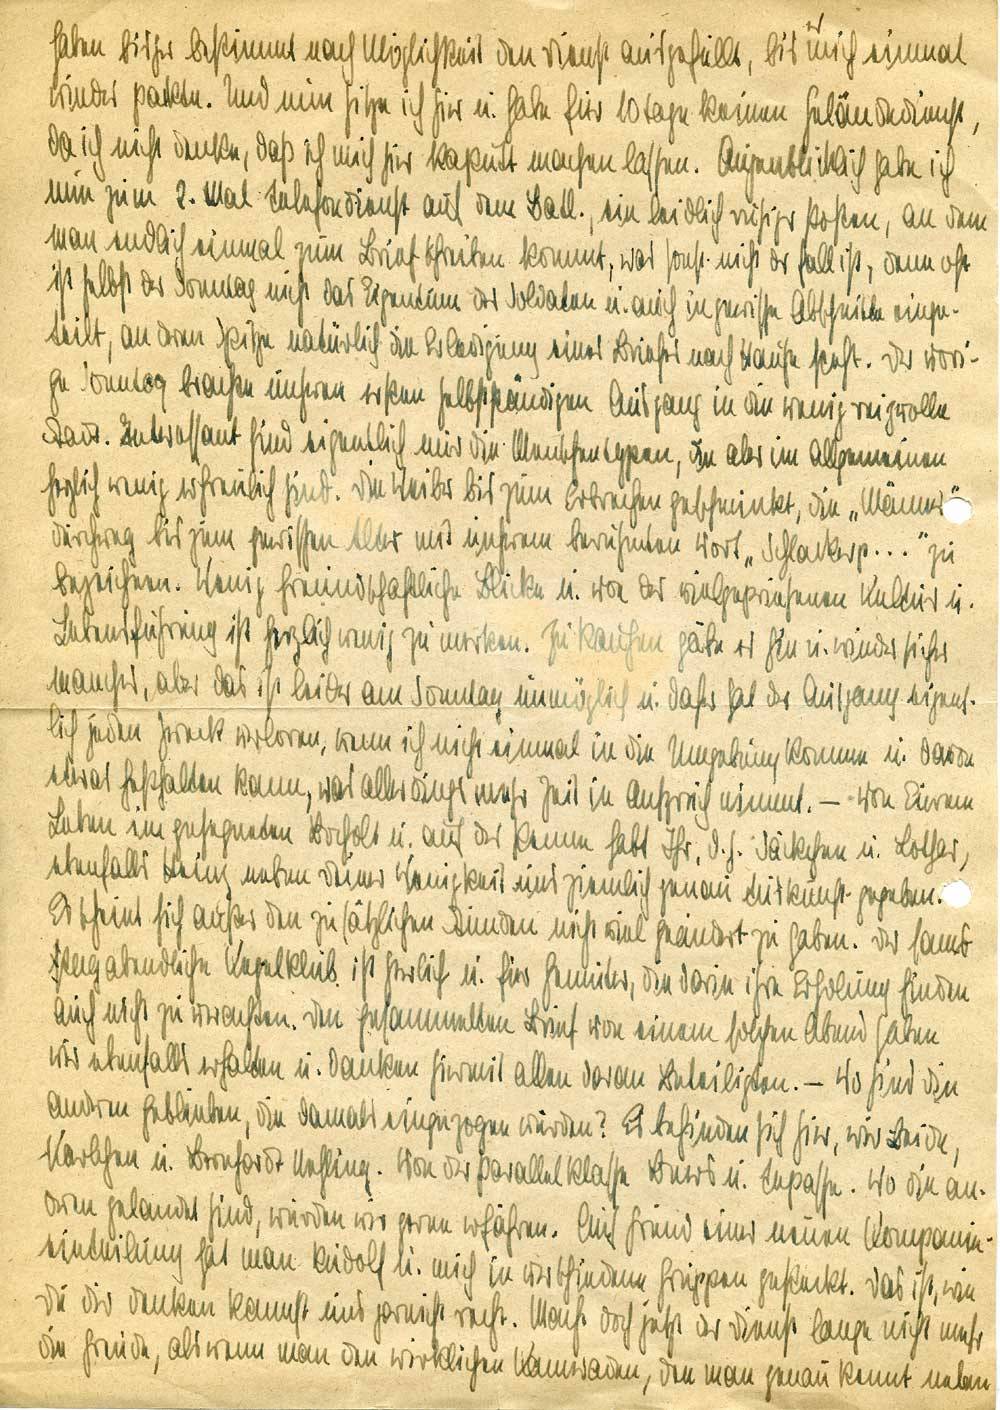 haben bisher bestimmt nach Möglichkeit den Dienst ausgefüllt, bis er mich einmal
wieder packte. Und nun sitze ich hier u. habe für 10 Tage keinen Geländedienst,
da ich nicht denke, daß ich mich hier kaputt machen lassen. Augenblicklich habe ich
nun zum 2. Mal Telefondienst auf dem Batl., ein leidlich ruhiger Posten, an dem
man endlich einmal zum Briefschreiben kommt, was sonst nicht der Fall ist, denn oft
ist selbst der Sonntag nicht das Eigentum der Soldaten u. auch in gewisse Abschnitte einge-
teilt, an deren Spitze natürlich die Erledigung eines Briefes nach Hause steht. Der vori-
ge Sonntag brachte unseren ersten selbstständigen Ausgang in die wenig reizvolle
Stadt. Interessant sind eigentlich nur die Menschentypen, die aber im Allgemeinen
herzlich wenig erfreulich sind. Die Weiber bis zum Erbrechen geschminkt, die „Männer“
durchweg bis zum gewissen Alter mit unserem berühmten Wort „Schlaksp...“ zu
bezeichnen. Wenig freundschaftliche Blicke u. von der vielgepriesenen Kultur u.
Lebensführung ist herzlich wenig zu merken. Zu kaufen gäbe es hin u. wieder sicher
manches, aber das ist leider am Sonntag unmöglich u. daher hat der Ausgang eigent-
lich jeden Zweck verloren, wenn ich nicht einmal in die Umgebung komme u. davon
etwas festhalten kann, was allerdings mehr Zeit in Anspruch nimmt. — Von Eurem
Leben im gesegneten Bocholt u. auf der Penne habt Ihr, d.h. u. Lothar,
ebenfalls Heinz neben deiner Wenigkeit uns ziemlich genau Auskunft gegeben.
Es scheint sich außer den zusätzlichen Stunden nicht viel geändert zu haben. Der sams-
tagabendliche Kegelklub ist herrlich u. für Gemüter, die darin ihre Erholung finden
auch nicht zu verachten. Den gesammelten Brief von einem solchen Abend haben
wir ebenfalls erhalten u. danken hiermit allen daran Beteiligten. — Wo sind die
anderen geblieben, die damals eingezogen wurden? Es befinden sich hier, wir beide,
Karlchen u. Bernhardt. Von der Parallelklasse u. Wo die an-
deren gelandet sind, würden wir gerne erfahren. Auf Grund einer neuen Kompanie-
einteilung hat man Rudolf u. mich in verschiedene Gruppen gesteckt. Das ist, wie
Du dir denken kannst uns garnicht recht. Macht doch jetzt der Dienst lange nicht mehr
die Freude, als wenn man den wirklichen Kameraden, den man genau kennt neben